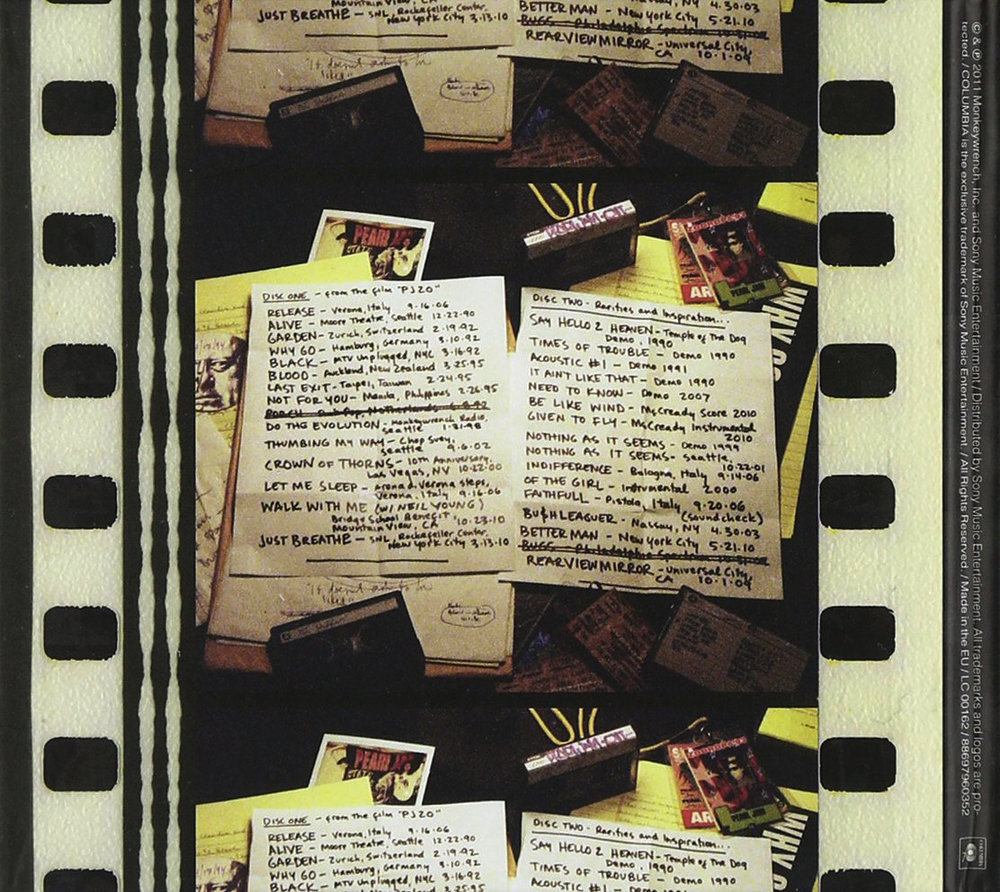 MOUNTAIN VIEW, CA
JUST BREATHE - SNL, Rockefeller Center,
New York City 3.13.10
NY 4.30.03
BETTER MAN - New York City 5.21.10
BUGS - Philadelphia Spectrum
REARVIEWMIRROR - Universal City,
CA 10.1.09
PEARL JAM
PEARL JAM
DISC ONE - from the film "PJ20"
RELEASE - Verona, Italy 9.16.06
ALIVE - Moore Theatre, Seattle 12.22.90
GARDEN - Zurich, Switzerland 2.19.92
WHY GO - Hamburg, Germany 3.10.92
BLACK - MTV Unplugged, NYC 3.16.92
BLOOD - Auckland, New Zealand 3.25.95
LAST EXIT - Taipei, Taiwan 2.24.95
NOT FOR YOU - Manila, Philippines 2.26.95
PORCH - Pink Pop, Netherlands 6.8.92
DO THE EVOLUTION - Monkeywrench Radio,
Seattle 1.31.98
THUMBING MY WAY - Chop Suey,
Seattle 9.6.02
CROWN OF THORNS - 10th Anniversary,
Las Vegas, NV 10.22.00
LET ME SLEEP - arena di verona steps,
Verona, Italy 9.16.06
WALK WITH ME (W/ NEIL YOUNG)
Bridge School Benefit
Mountain View, CA '10.23.10
JUST BREATHE - SNL, Rockefeller Center,
New York City 3.13.10
DISC TWO - Rarities and Inspiration...
SAY HELLO 2 HEAVEN - Temple of The Dog
Demo, 1990
TIMES OF TROUBLE - Demo 1990
ACOUSTIC #1 - Demo 1991
IT AIN'T LIKE THAT - Demo 1990
NEED TO KNOW - Demo 2007
BE LIKE WIND - McCready Score 2010
GIVEN TO FLY - McCready Instrumental
2010
NOTHING AS IT SEEMS - Demo 1999
NOTHING AS IT SEEMS - Seattle,
10.22.01
INDIFFERENCE - Bologna, Italy 9.14.06
OF THE GIRL - Instrumental 2000
FAITHFULL - Pistoia, Italy 9.20.06
(soundcheck)
BU$HLEAGUER - Nassau, NY 4.30.03
BETTER MAN - New York City 5.21.10
BUGS - Philadelphia Spectrum
REARVIEWMIRROR - Universal City,
CA 10.1.09
AR
WHY GO
PEARL
DISC ONE - from the film "PJ20"
RELEASE - Verona, Italy 9.16.06
ALIVE - Moore Theatre, Seattle 12.22.90
GARDEN - Zurich, Switzerland 2.19.92
WHY GO - Hamburg, Germany 3.10.92
BLACK - MTV Unplugged, NYC 3.16.92
3.25.95
DISC TWO - Rarities and Inspiration...
SAY HELLO 2 HEAVEN - Temple of The Dog
Demo, 1990
TIMES OF TROUBLE - Demo 1990
ACOUSTIC #1 - Demo 1991
AR
PEARL JAM
WHY
© & ℗ 2011 Monkeywrench, Inc. and Sony Music Entertainment / Distributed by Sony Music Entertainment. All trademarks and logos are pro-
tected. / COLUMBIA is the exclusive trademark of Sony Music Entertainment. / All Rights Reserved. / Made in the EU / LC 00162 / 88697960352